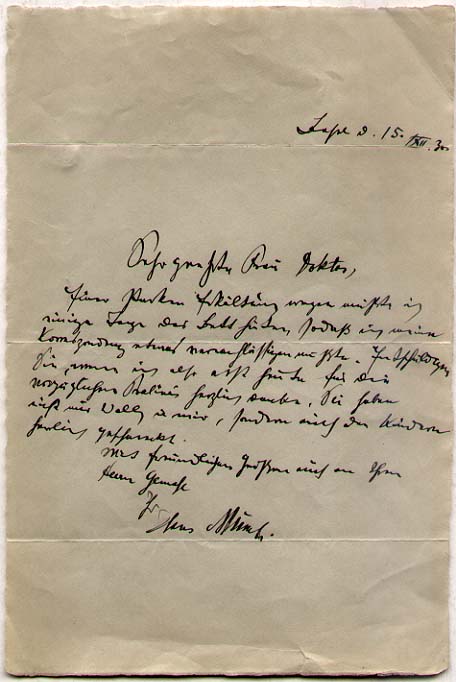 d. 15. XII. 30
Sehr geehrte Frau Doktor,
Einer starken Erkältung wegen mußte ich
einige Tage das Bett hüten, sodaß ich meine
Korrespondenz etwas vernachlässigen mußte. Entschuldigen
Sie, wenn ich also erst heute für die
vorzüglichen Pralinés herzlich danke. Sie haben
nicht nur Molly u. mir, sondern auch den Kindern
geschmeckt.
Mit freundlichen Grüßen auch an Ihren
Herrn Gemahl
Ihr
Hans Münch.